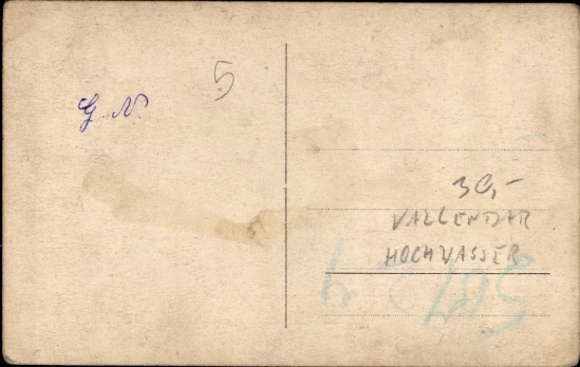 5
G. N.
30,-
VALLENDAR
HOCHWASSER